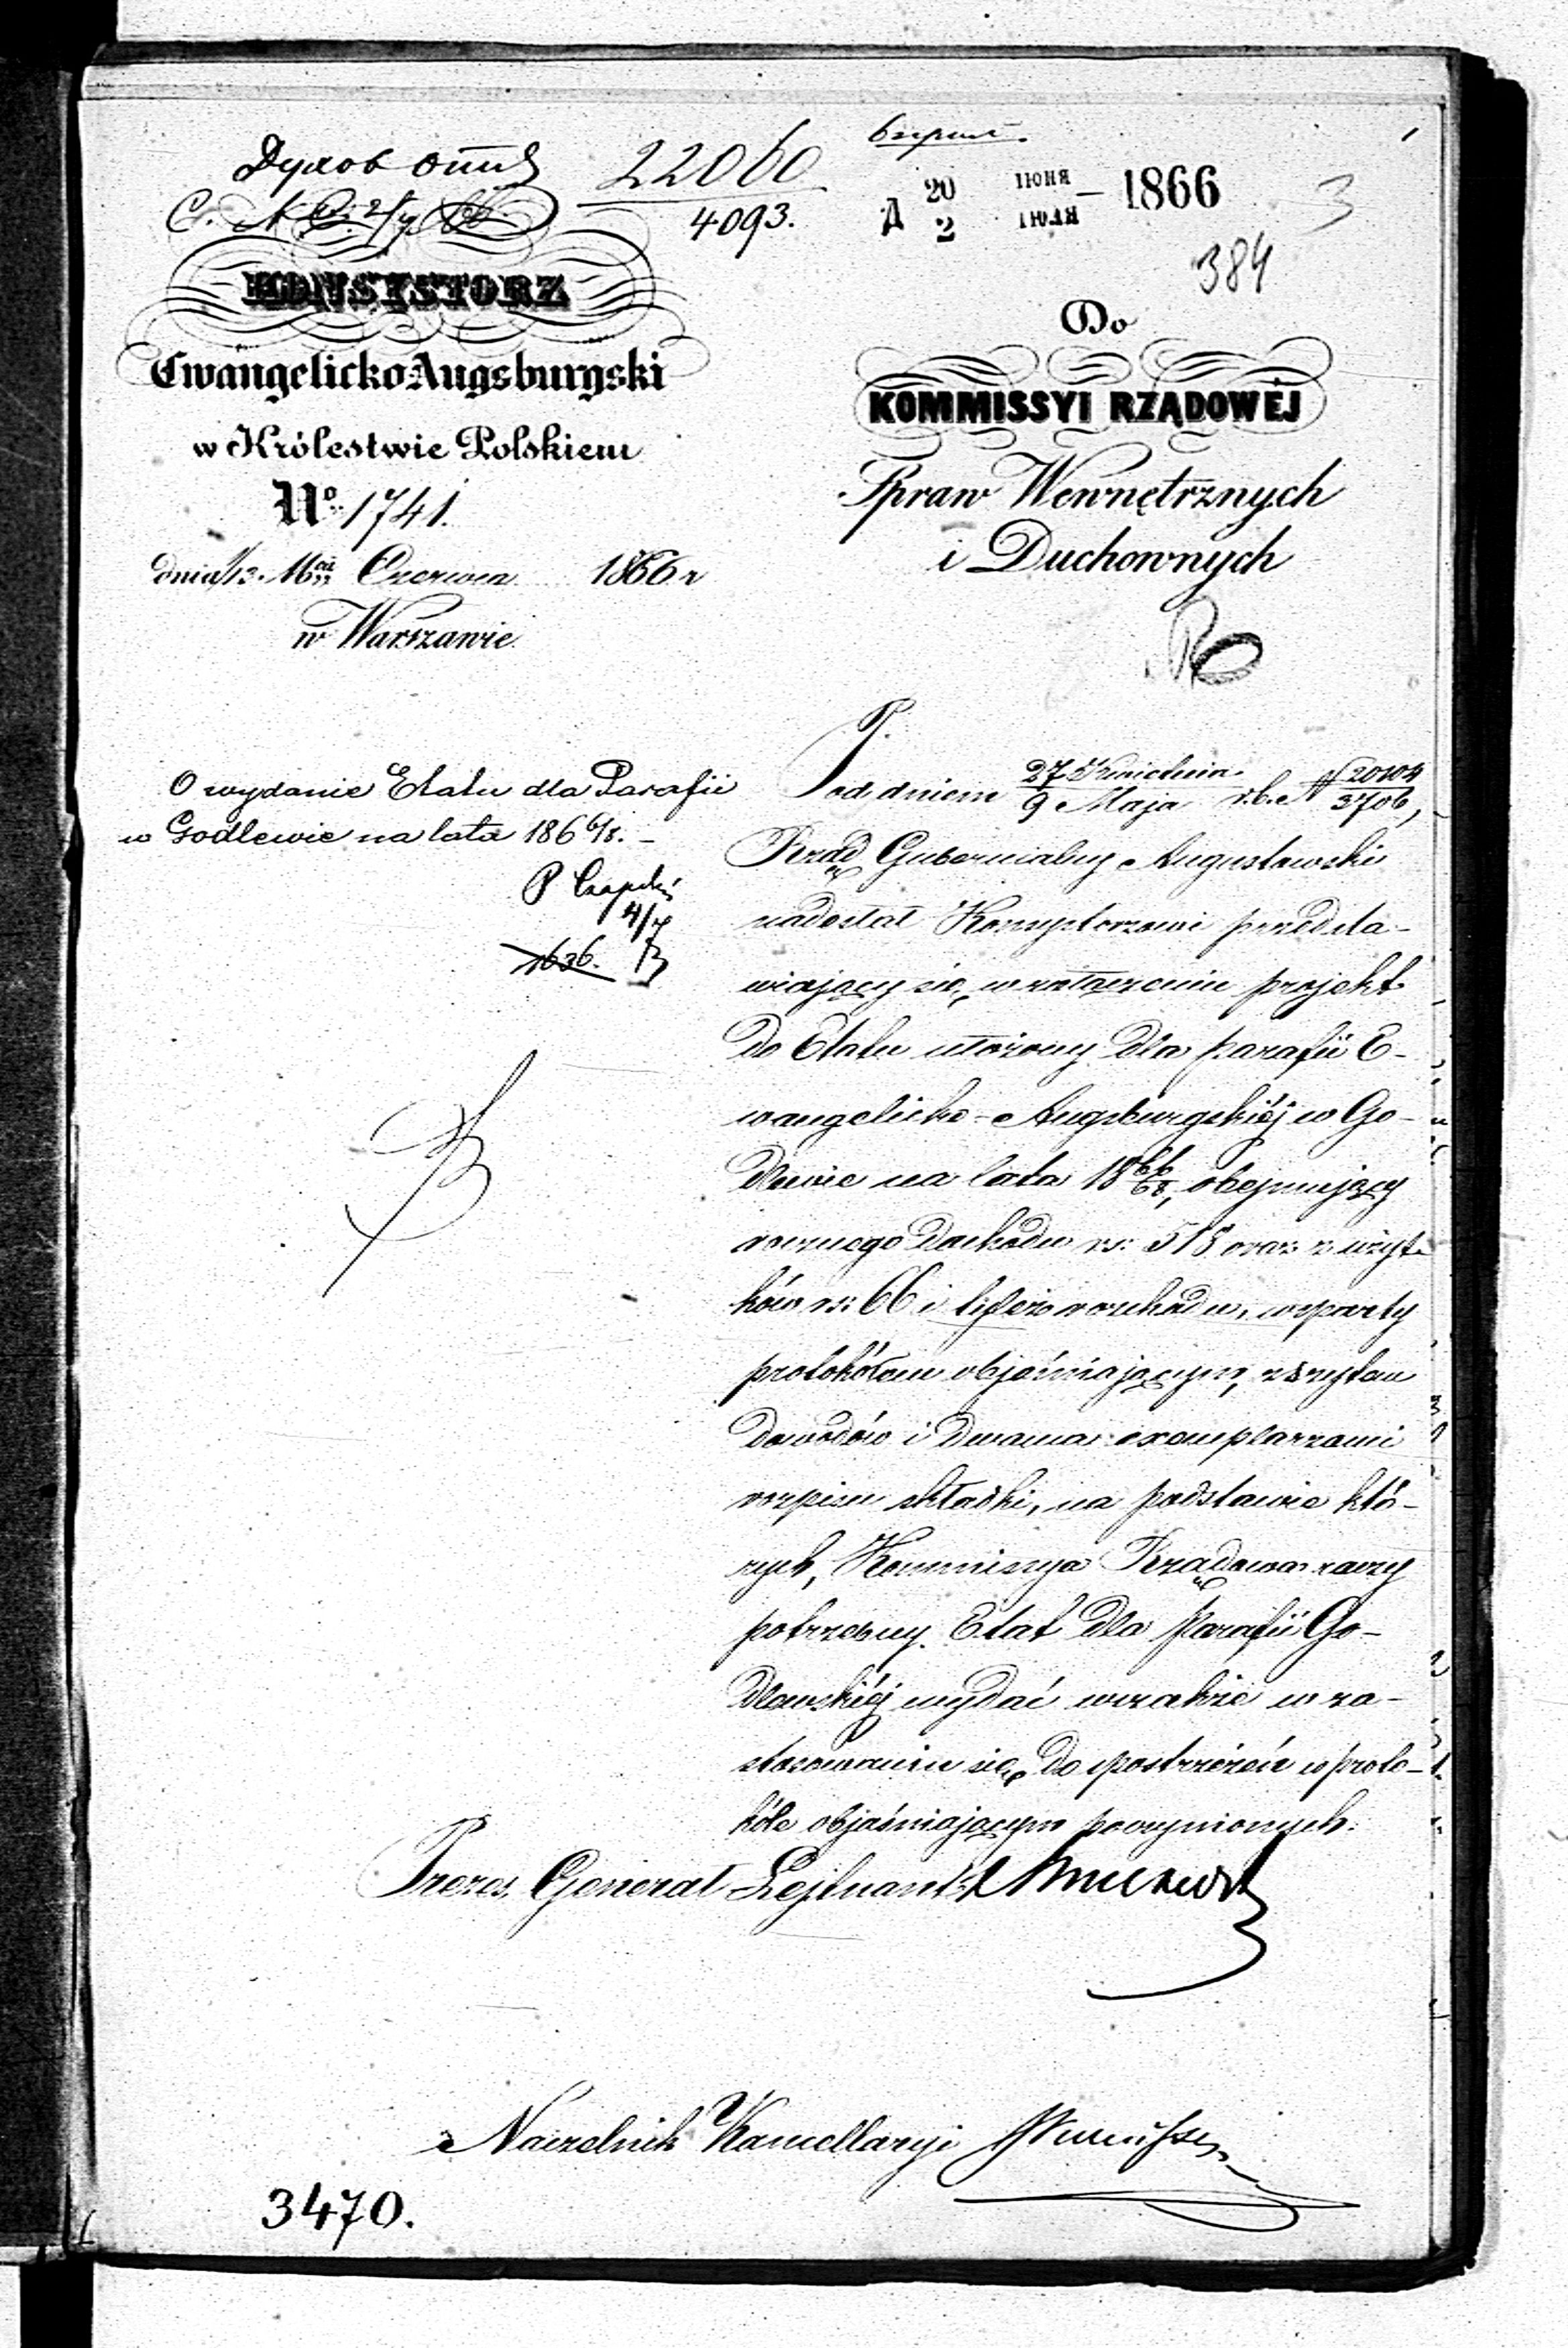 Духов отд
22060
4093.
Д 20 ІЮНЯ 2 ІЮЛЯ — 1866
3
384
KONSYSTORZ
Ewangelicko-Augsburgski
w Królestwie Polskiem
No 1741.
dnia 1/13. Mca Czerwca 1866 r
w Warszawie.
Do
KOMMISSYI RZĄDOWÉJ
Spraw Wewnętrznych
i Duchownych
O wydanie Etatu dla Parafii
w Godlewie na lata 1866/8. -
P Czapski
4/7
1636.
P.
Pod dniem 27 Kwietnia / 9 Maja r.b. N 20104/3706,
Rząd Gubernialny Augustowski
nadesłał Konsystorzowi przedsta-
wiający się w załączeniu projekt
do Etatu ułożony dla parafii E-
wangelicko-Augsburgskiéj w Go-
dlewie na lata 1866/68, obejmujący
rocznego dochodu rs: 518 oraz z użyt-
ków rs: 66 i tyleż rozchodu, wsparty
protokółem objaśniającym, zszytem
dowodów i dwoma exemplarzami
rozpisu składki, na podstawie któ-
rych, Kommissya Rządowa raczy
potrzebny Etat dla Parafii Go-
dlewskiéj wydać wszakże w za-
stosowaniu się do spostrzeżeń w proto-
kóle objaśniającym poczynionych.
Prezes, Generał Lejtnant
Naczelnik Kancellaryi
3470.